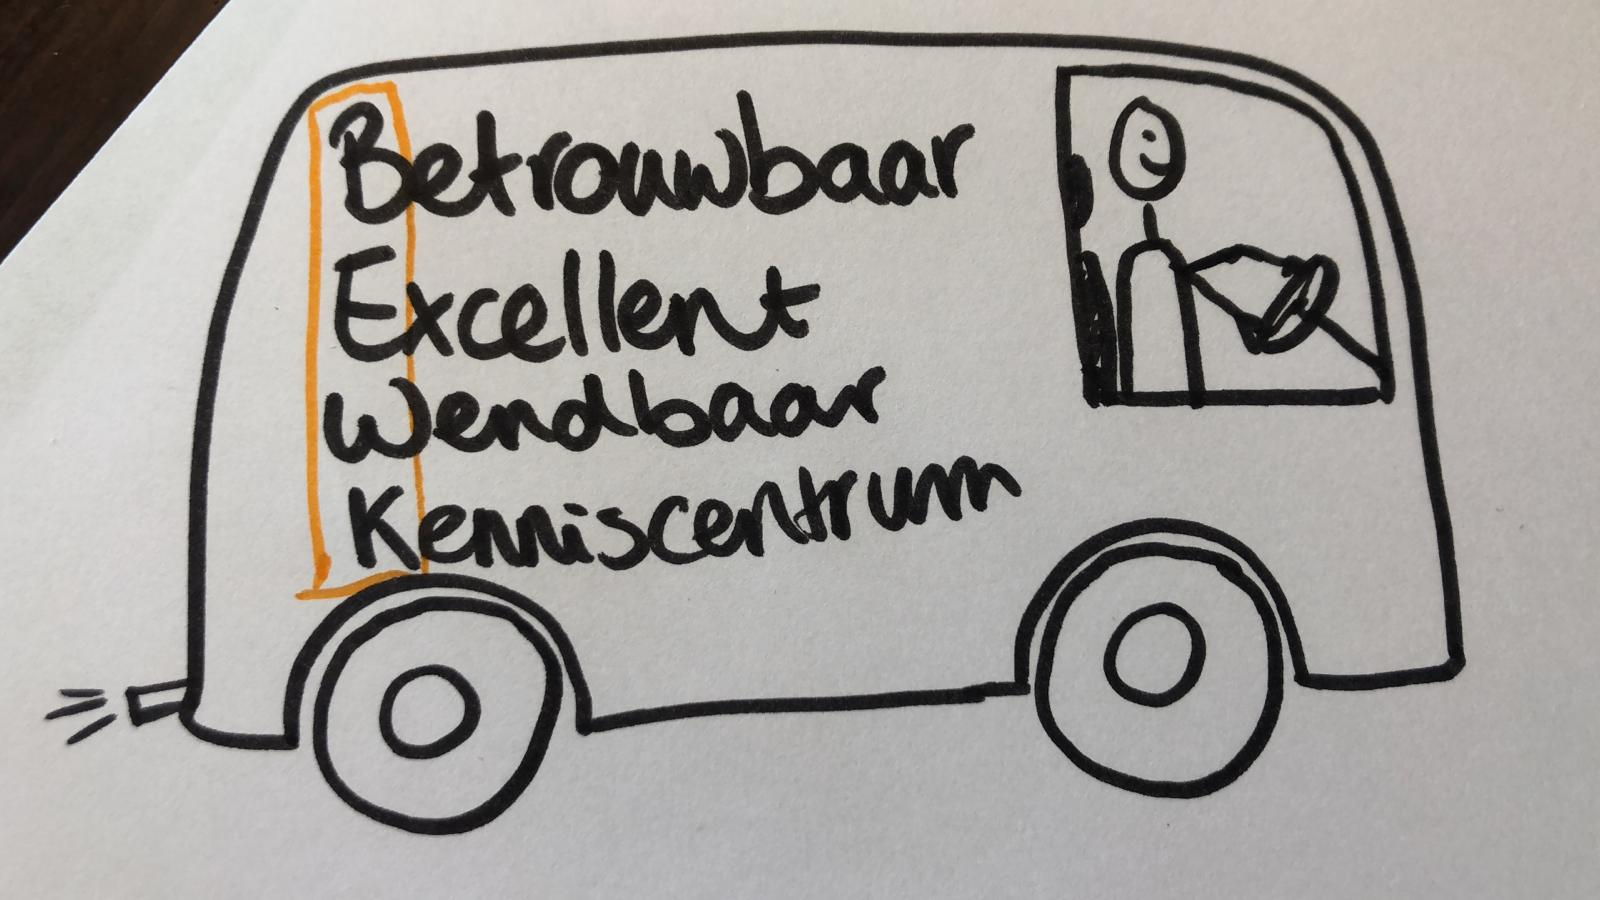 Betrouwbaar
Excellent
Wendbaar
Kenniscentrum